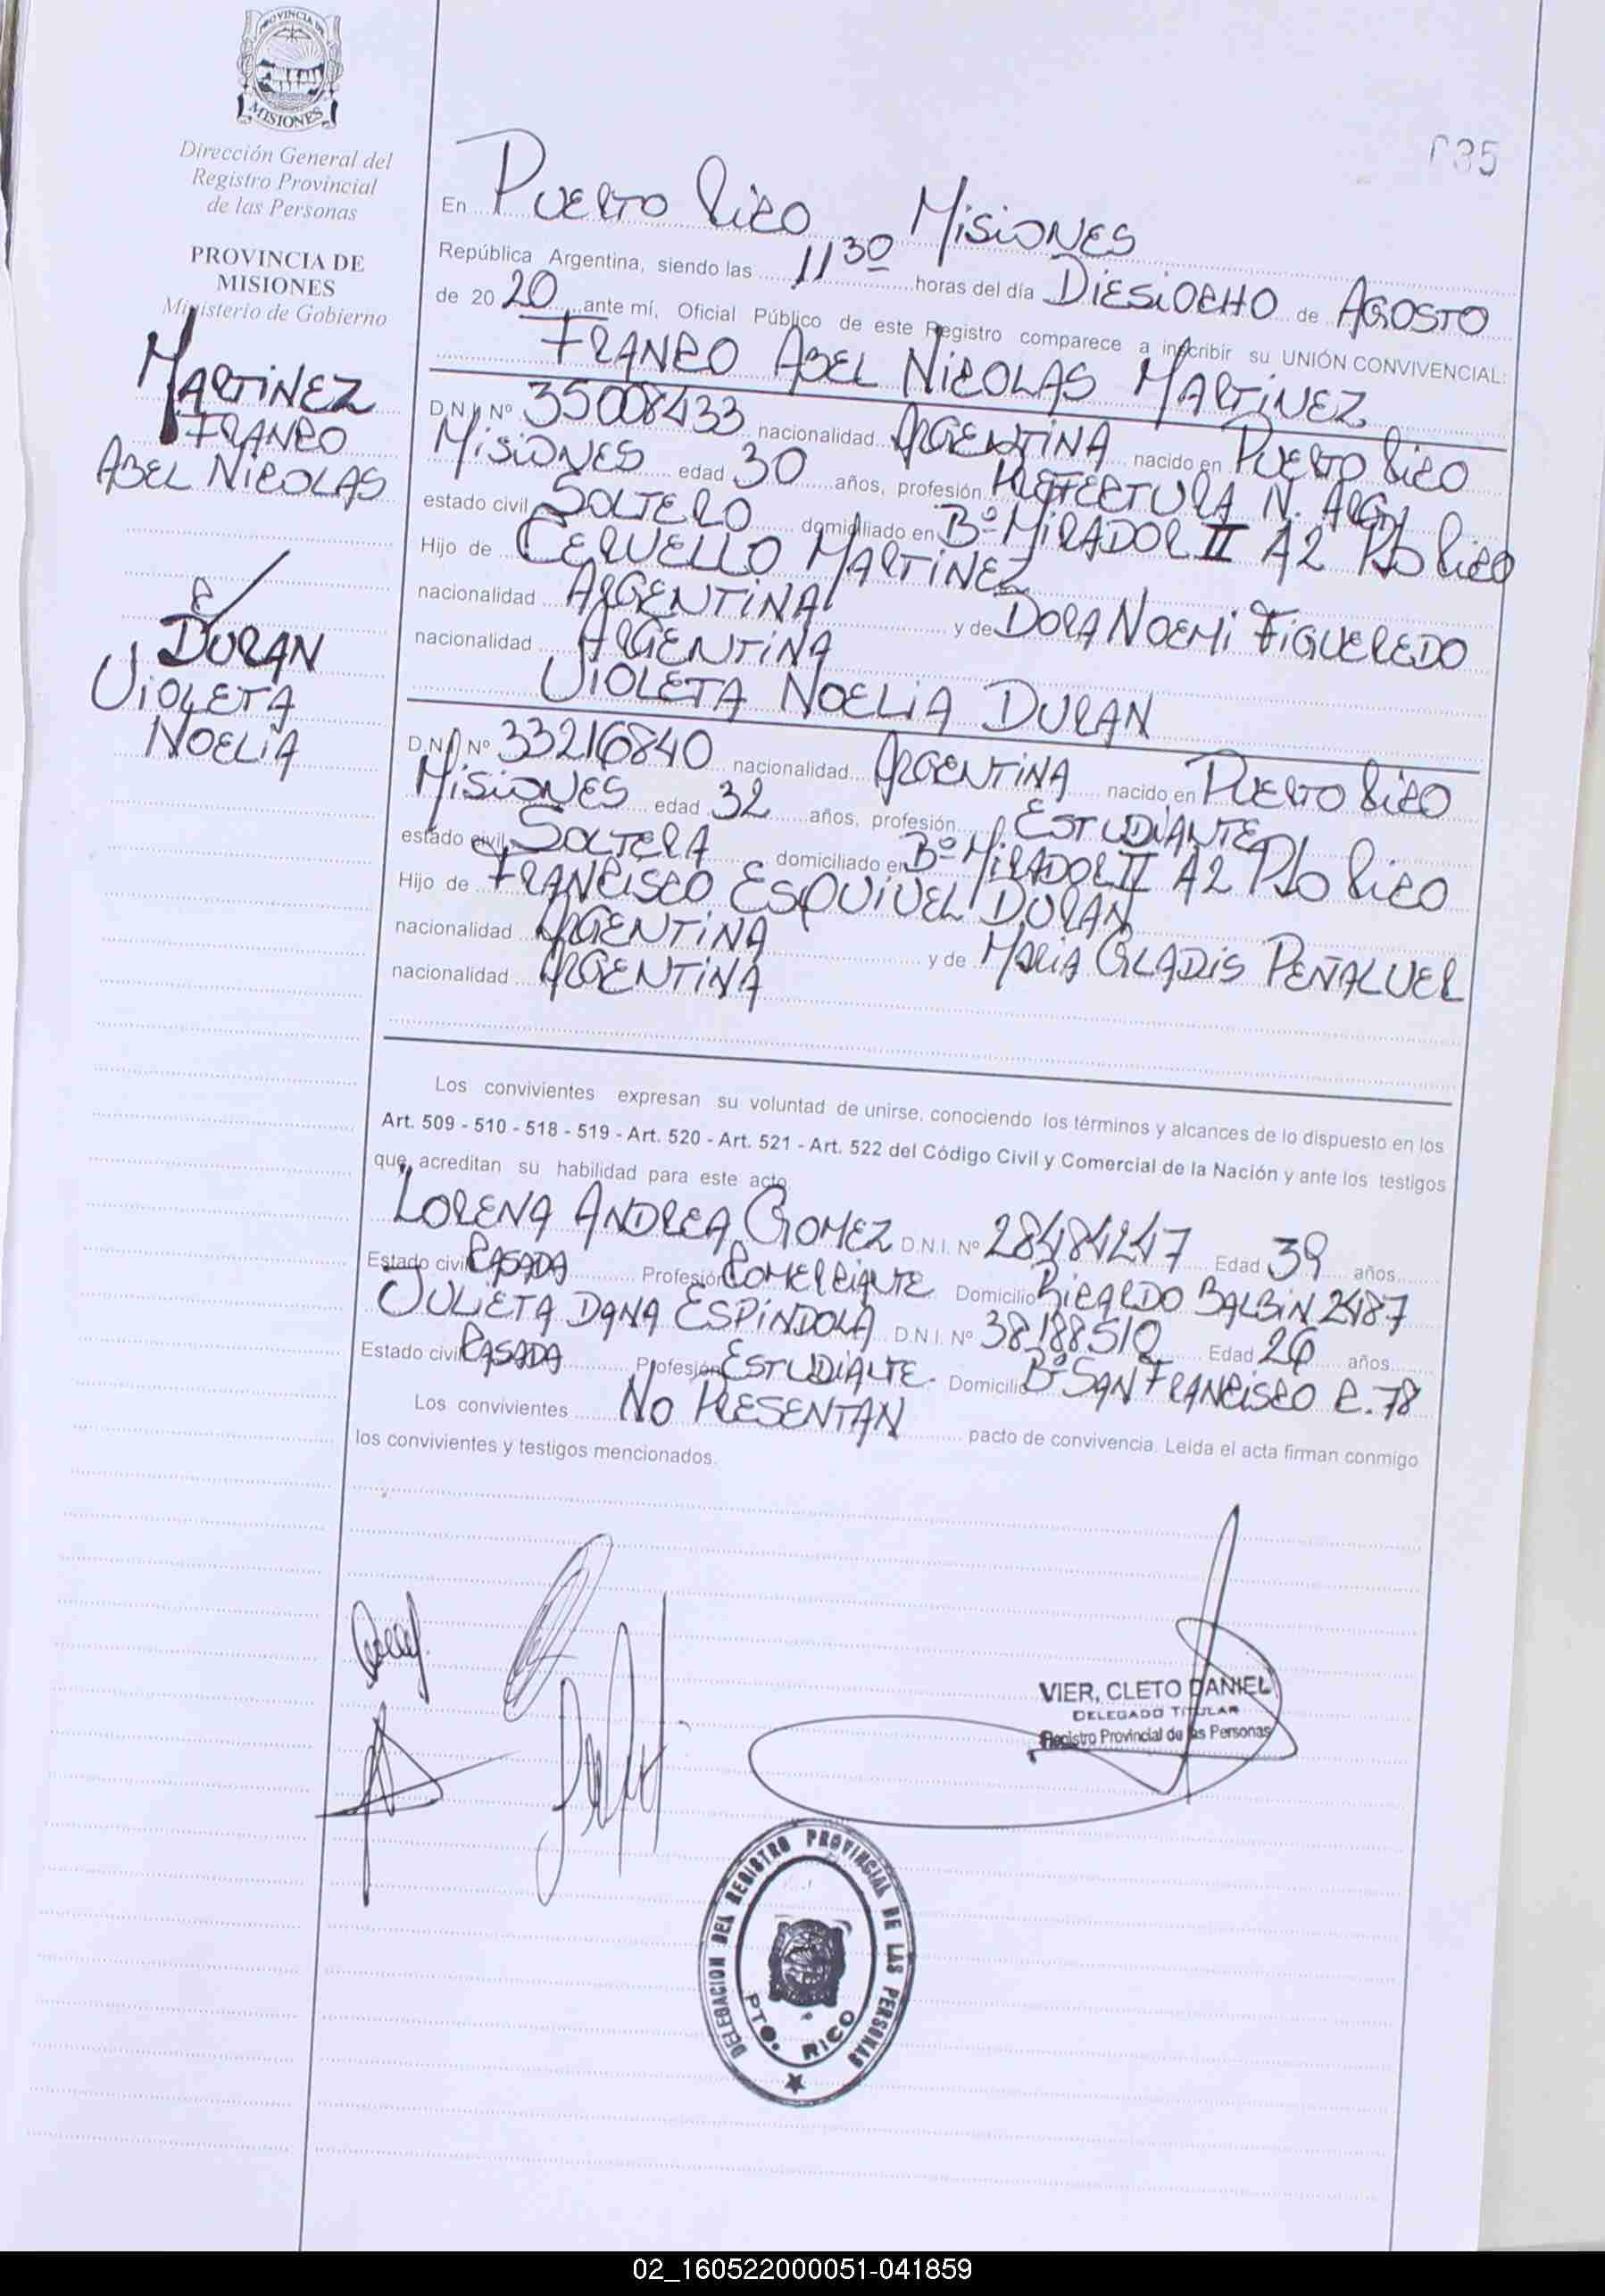 PROVINCIA DE
MISIONES
Dirección General del
Registro Provincial
de las Personas
PROVINCIA DE
MISIONES
Ministerio de Gobierno
MARTINEZ
FRANCO
ABEL NICOLAS
E/
DURAN
VIOLETA
NOELIA
035
En PUERTO RICO MISIONES
República Argentina, siendo las 11 30 horas del día DIESIOCHO de AGOSTO
de 20 20 ante mí, Oficial Público de este Registro comparece a inscribir su UNIÓN CONVIVENCIAL:
FRANCO ABEL NICOLAS MARTINEZ
D.N.I. Nº 35008433 nacionalidad ARGENTINA nacido en PUERTO RICO
MISIONES edad 30 años, profesión PREFECTURA N. ARG
estado civil SOLTERO domiciliado en Bº MIRADOR II A2 Pto RICO
Hijo de MARTINEZ
nacionalidad ARGENTINA y de DORA NOEMI FIGUEREDO
nacionalidad ARGENTINA
VIOLETA NOELIA DURAN
D.N.I. Nº 33216840 nacionalidad ARGENTINA nacido en PUERTO RICO
MISIONES edad 32 años, profesión ESTUDIANTE
estado civil SOLTERA domiciliado en Bº MIRADOR II A2 Pto RICO
Hijo de FRANCISCO ESQUIVEL DURAN
nacionalidad ARGENTINA y de MARIA GLADIS PEÑALVER
nacionalidad ARGENTINA
Los convivientes expresan su voluntad de unirse, conociendo los términos y alcances de lo dispuesto en los
Art. 509 - 510 - 518 - 519 - Art. 520 - Art. 521 - Art. 522 del Código Civil y Comercial de la Nación y ante los testigos
que acreditan su habilidad para este acto
LORENA ANDREA GOMEZ D.N.I. Nº 28484247 Edad 39 años
Estado civil CASADA Profesión COMERCIANTE Domicilio RICARDO BALBIN 2487
JULIETA DANA ESPINDOLA D.N.I. Nº 38188510 Edad 26 años
Estado civil CASADA Profesión ESTUDIANTE Domicilio Bº SAN FRANCISCO C.78
Los convivientes NO PRESENTAN pacto de convivencia. Leída el acta firman conmigo
los convivientes y testigos mencionados.
VIER, CLETO DANIEL
DELEGADO TITULAR
Registro Provincial de las Personas
DELEGACION DEL REGISTRO PROVINCIAL DE LAS PERSONAS
PTO. RICO
02_160522000051-041859